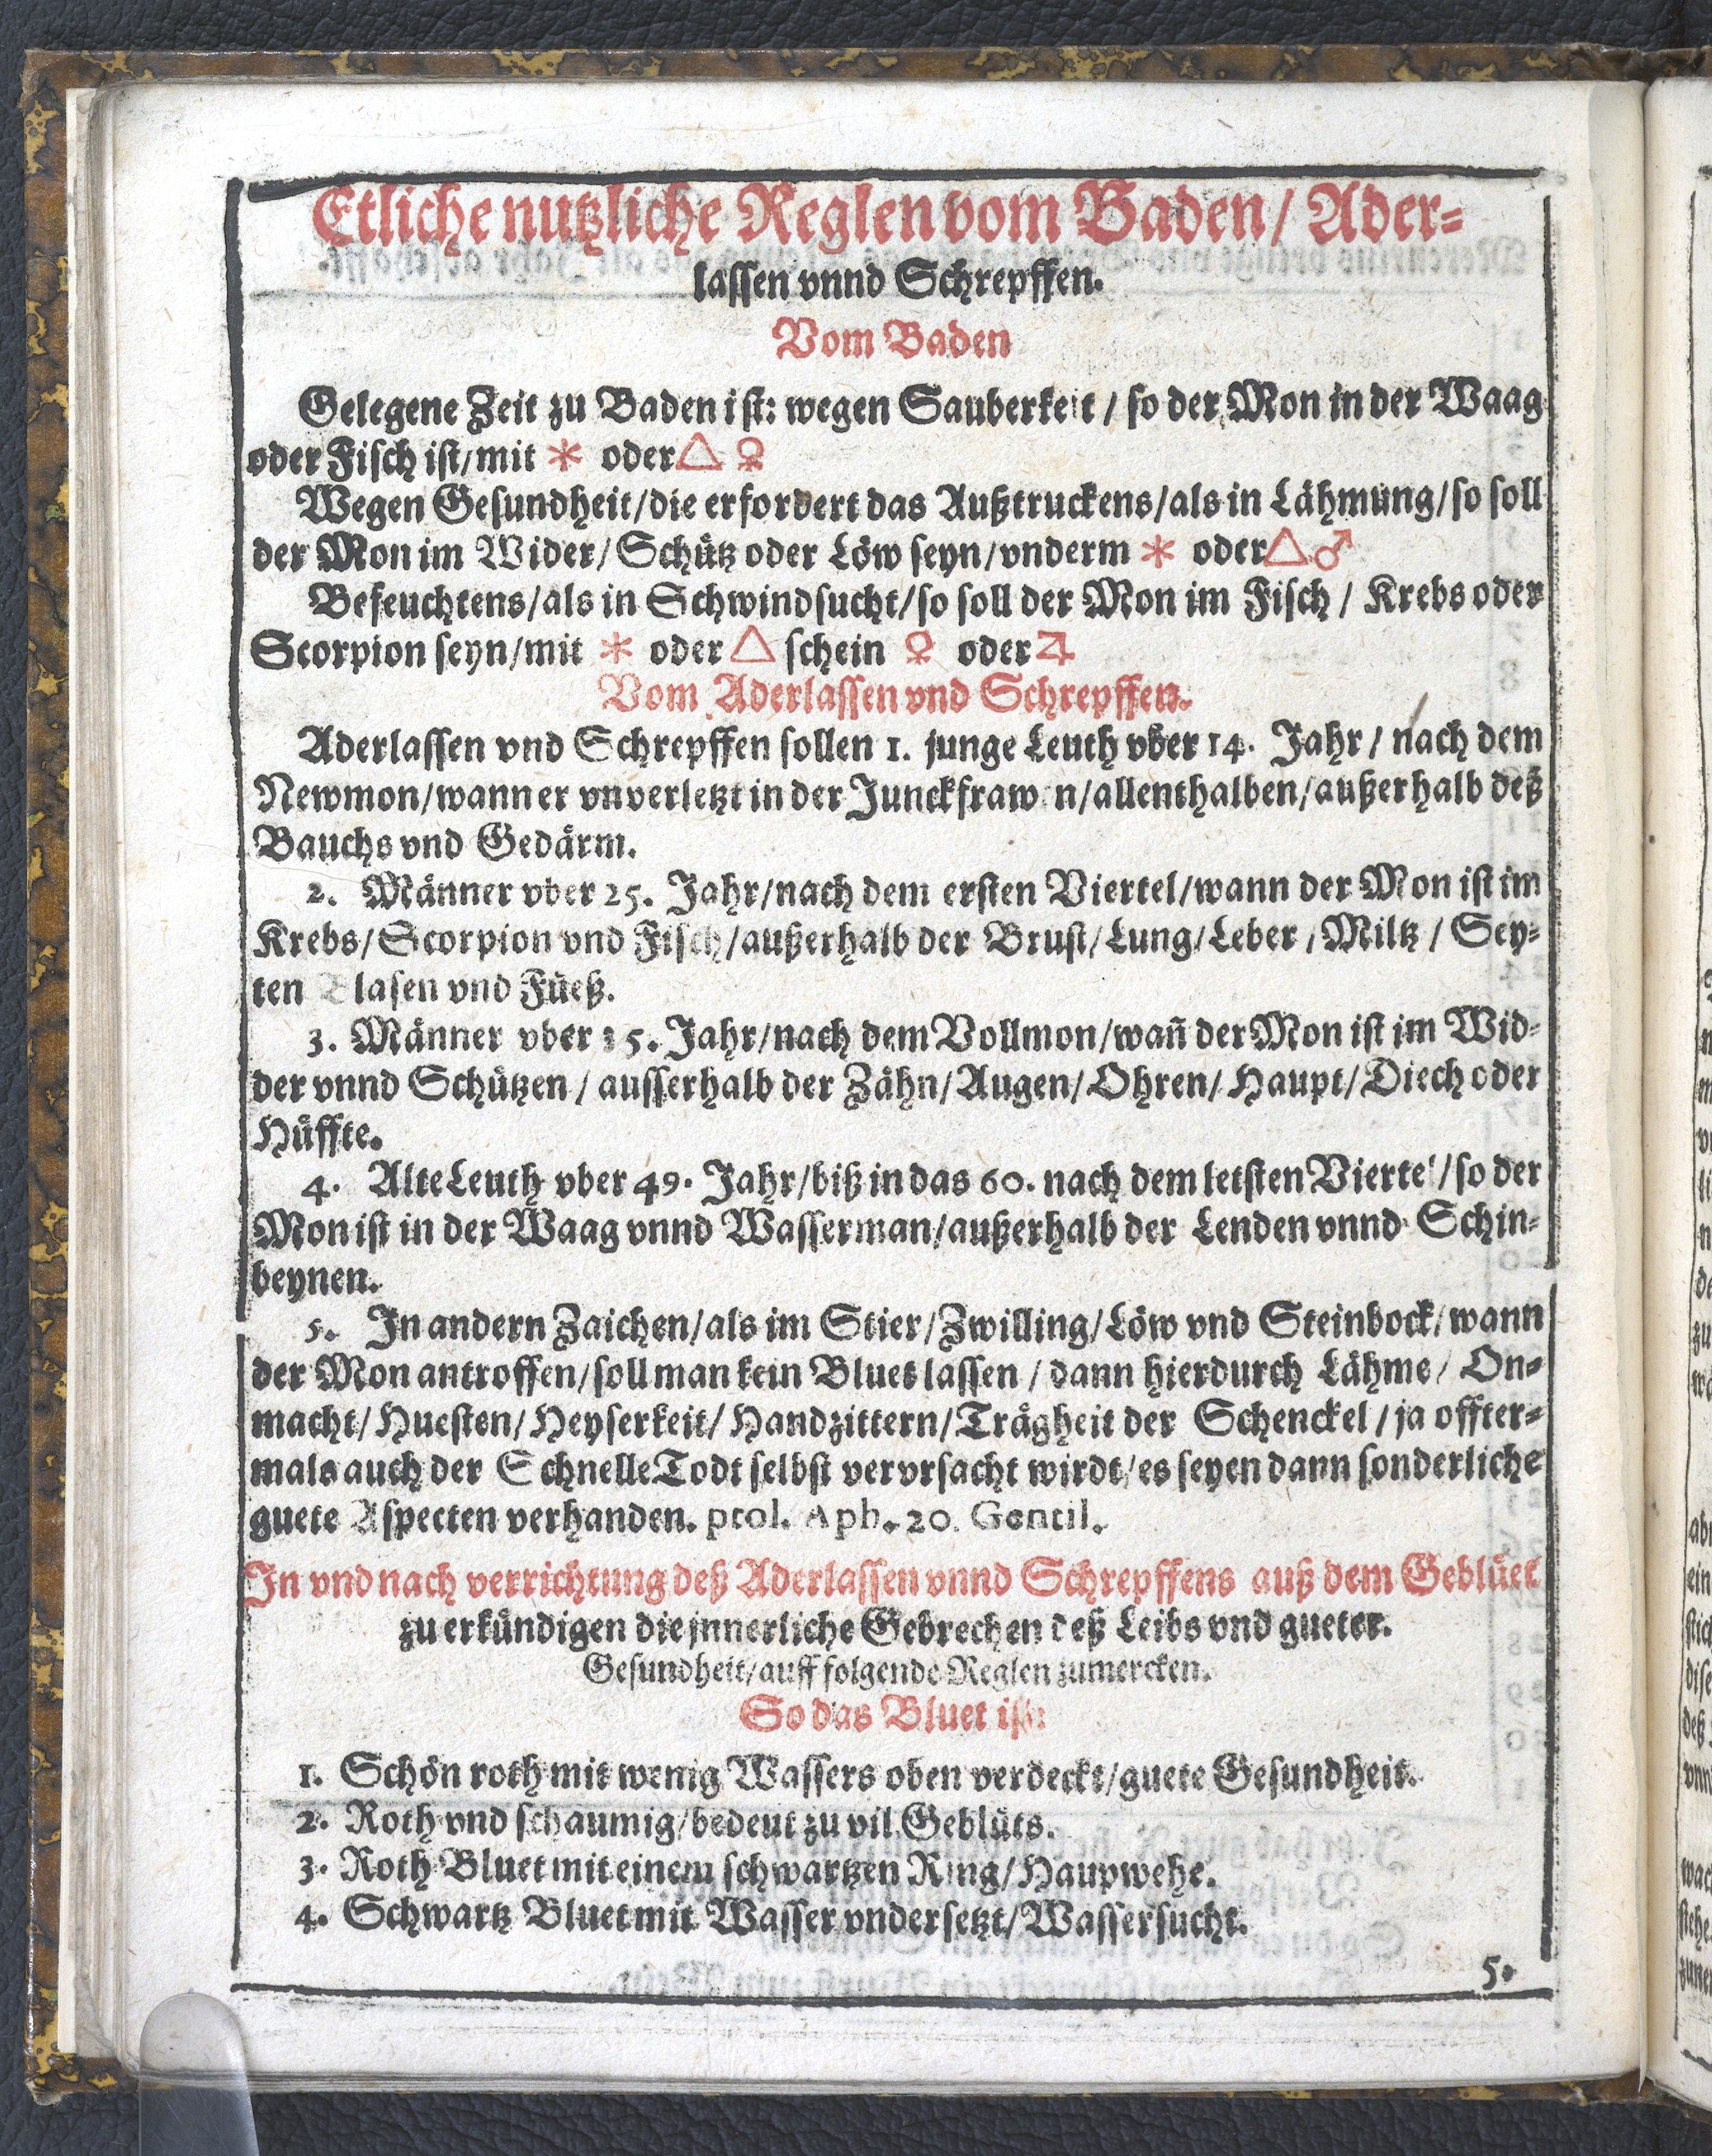 Etliche nutzliche Reglen vom Baden / Ader-
lassen vnnd Schrepffen.
Vom Baden
Gelegene Zeit zu Baden ist: wegen Sauberkeit / so der Mon in der Waag
oder Fisch ist / mit ⚹ oder △ ♀
Wegen Gesundheit / die erfordert das Außtruckens / als in Lähmung / so soll
der Mon im Wider / Schütz oder Löw seyn / vnderm ⚹ oder △ ♂
Befeuchtens / als in Schwindsucht / so soll der Mon im Fisch / Krebs oder
Scorpion seyn / mit ⚹ oder △ schein ♀ oder ♃
Vom Aderlassen vnd Schrepffen.
Aderlassen vnd Schrepffen sollen 1. junge Leuth vber 14. Jahr / nach dem
Newmon / wann er vnverletzt in der Junckfrawen / allenthalben / außerhalb deß
Bauchs vnd Gedärm.
2. Männer vber 25. Jahr / nach dem ersten Viertel / wann der Mon ist im
Krebs / Scorpion vnd Fisch / außerhalb der Brust / Lung / Leber / Miltz / Sey-
ten Blasen vnd Füeß.
3. Männer vber 35. Jahr / nach dem Vollmon / wañ der Mon ist im Wid-
der vnnd Schützen / ausserhalb der Zähn / Augen / Ohren / Haupt / Diech oder
Hüffte.
4. Alte Leuth vber 49. Jahr / biß in das 60. nach dem letsten Viertel / so der
Mon ist in der Waag vnnd Wasserman / außerhalb der Lenden vnnd Schin-
beynen.
5. In andern Zaichen / als im Stier / Zwilling / Löw vnd Steinbock / wann
der Mon antroffen / soll man kein Bluet lassen / dann hierdurch Lähme / On-
macht / Huesten / Heyserkeit / Handzittern / Trägheit der Schenckel / ja offter-
mals auch der Schnelle Todt selbst vervrsacht wirdt / es seyen dann sonderliche
guete Aspecten verhanden. ptol. Aph. 20. Gentil.
In vnd nach verrichtung deß Aderlassen vnnd Schrepffens auß dem Geblüet
zu erkündigen die jnnerliche Gebrechen deß Leibs vnd gueter.
Gesundheit / auff folgende Reglen zumercken.
So das Bluet ist:
1. Schön roth mit wenig Wassers oben verdeckt / guete Gesundheit.
2. Roth vnd schaumig / bedeut zu vil Geblüts.
3. Roth Bluet mit einem schwartzen Ring / Haupwehe.
4. Schwartz Bluet mit Wasser vndersetzt / Wassersucht.
5.